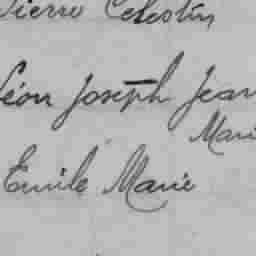 Pierre Celestin
Léon Joseph Jean
Marie
Emile Marie